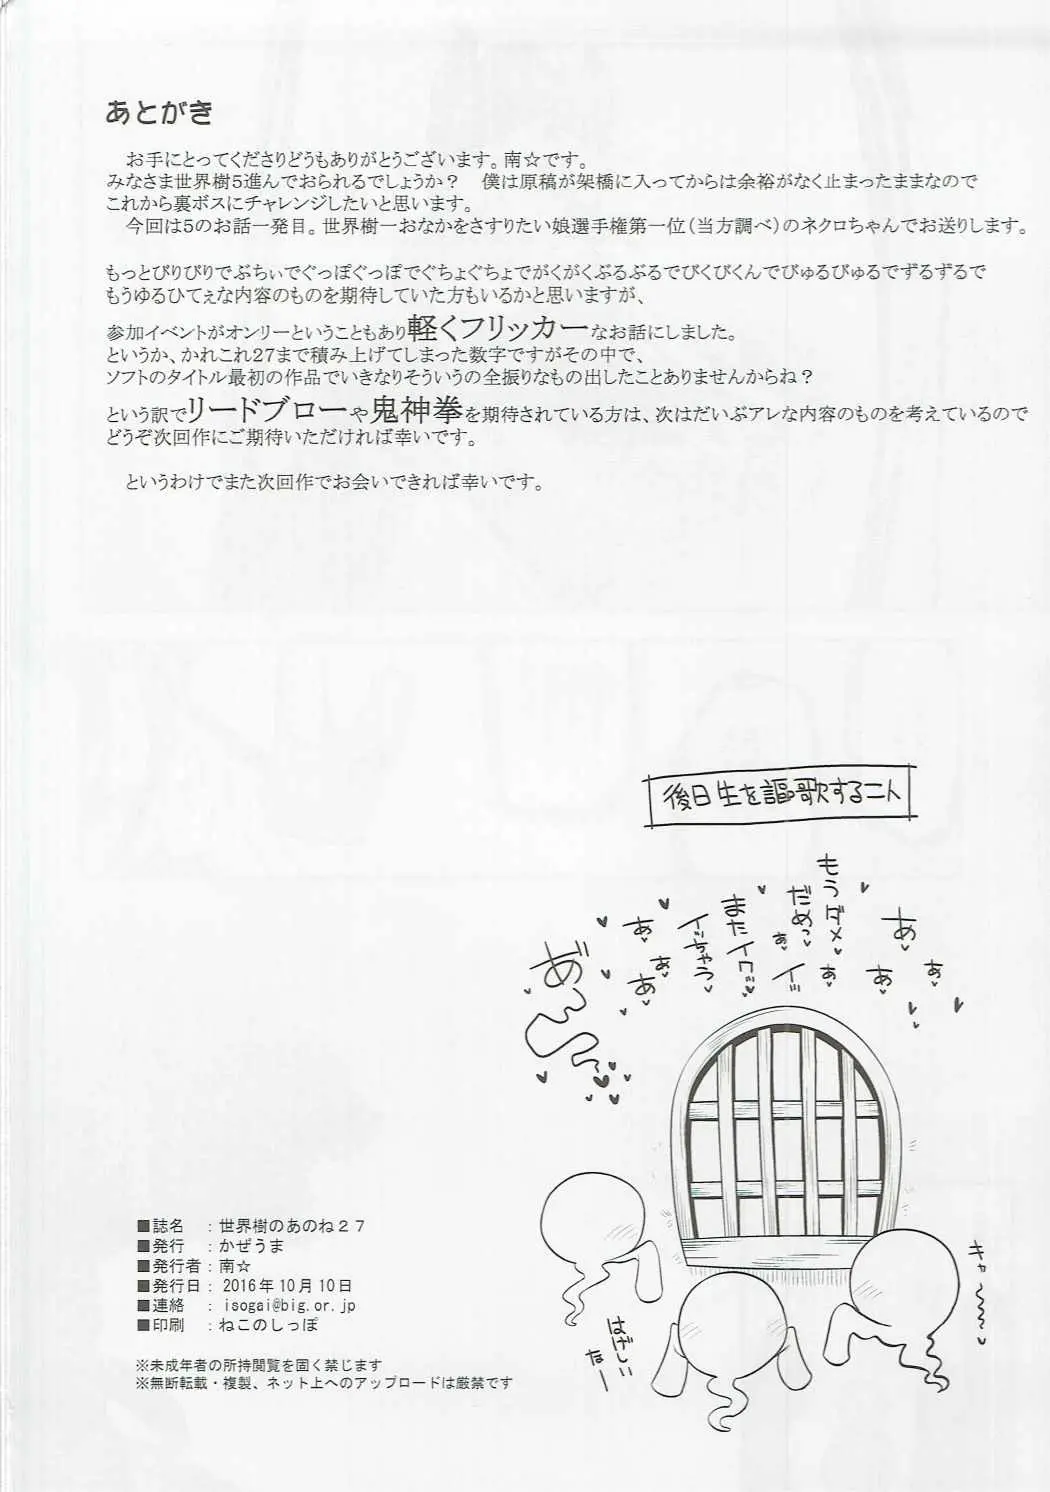 あとがき
お手にとってくださりどうもありがとうございます。南☆です。
みなさま世界樹5進んでおられるでしょうか？　僕は原稿が架橋に入ってからは余裕がなく止まったままなので
これから裏ボスにチャレンジしたいと思います。
今回は5のお話一発目。世界樹一おなかをさすりたい娘選手権第一位(当方調べ)のネクロちゃんでお送りします。
もっとびりびりでぶちぃでぐっぽぐっぽでぐちょぐちょでがくがくぶるぶるでびくびくんでびゅるびゅるでずるずるで
もうゆるひてぇな内容のものを期待していた方もいるかと思いますが、
参加イベントがオンリーということもあり軽くフリッカーなお話にしました。
というか、かれこれ27まで積み上げてしまった数字ですがその中で、
ソフトのタイトル最初の作品でいきなりそういうの全振りなもの出したことありませんからね？
という訳でリードブローや鬼神拳を期待されている方は、次はだいぶアレな内容のものを考えているので
どうぞ次回作にご期待いただければ幸いです。
というわけでまた次回作でお会いできれば幸いです。
後日生を謳歌する二人
あ♥
あ♥
あ♥
もうダメ♥
あ♥
だめっ♥
あ♥
イッ
またイクッ♥
イッちゃう♥
あ♥
あ♥
あ♥
キャー♥
はげしい
なー
■誌名　：世界樹のあのね２７
■発行　：かぜうま
■発行者：南☆
■発行日：2016年10月10日
■連絡　：isogai@big.or.jp
■印刷　：ねこのしっぽ
※未成年者の所持閲覧を固く禁じます
※無断転載・複製、ネット上へのアップロードは厳禁です